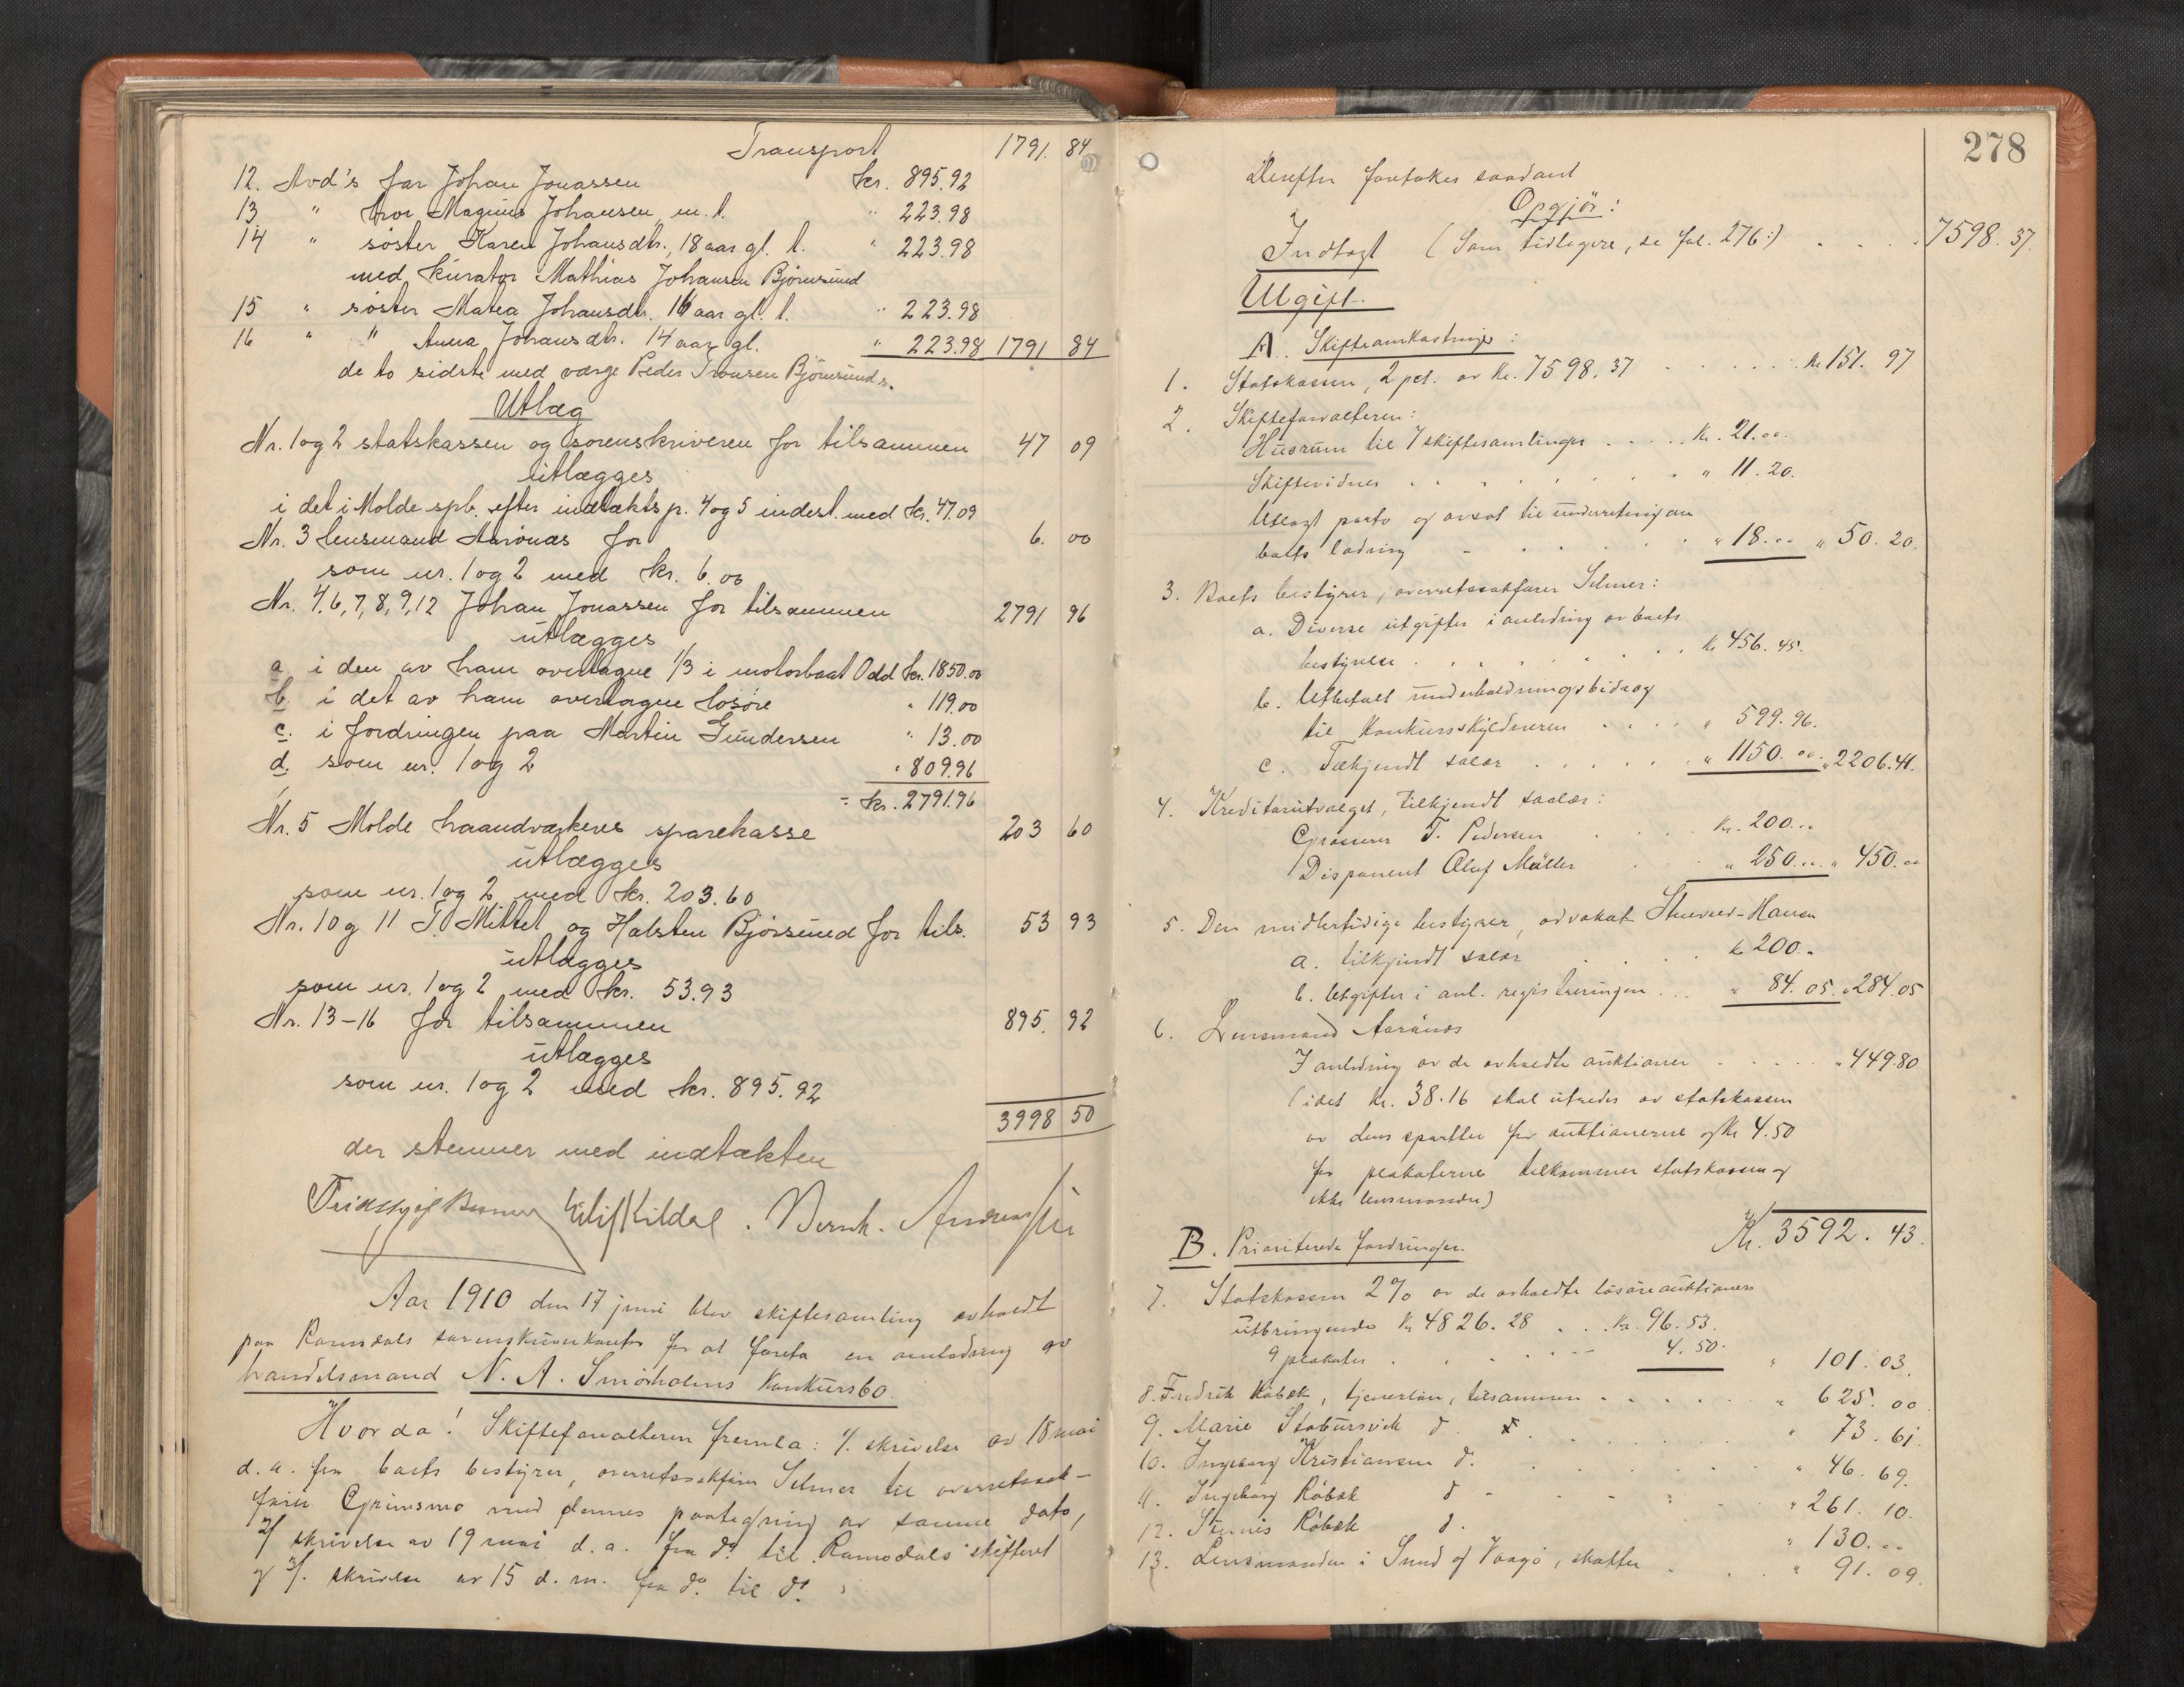 Transport 1791. 84
12. Avd's far Johan Jonassen kr. 895.92
13 " bror Magnus Johansen, m. l. " 223.98
14 " søster Karen Johansdtr., 18 aar gl. l. " 223.98
med kurator Mathias Johansen Bjørnsund
15 " søster Matea Johansdtr. 16 aar gl. l. " 223.98
16 " " Anna Johansdtr. 14 aar gl. " 223.98 1791 84
de to sidste med værge Peder Iversen Bjørnsund s.
Utlæg
Nr. 1 og 2 statskassen og sorenskriveren for tilsammen 47 09
utlægges
i det i Molde spb. efter indtækts p. 4 og 5 indest. med kr. 47.09
Nr. 3 lensmand Aarønæs for 6. 00
som nr. 1 og 2 med kr. 6.00
Nr. 4, 6, 7, 8, 9, 12 Johan Jonassen for tilsammen 2791 96
utlægges
a. i den av ham overtagne 1/3 i motorbaat Odd kr. 1850.00
b. i det av ham overtagne løsøre " 119.00
c. i fordringen paa Martin Gundersen " 13.00
d. som nr. 1 og 2 " 809.96
= kr. 2791.96
Nr. 5 Molde haandværkeres sparekasse 203 60
utlægges
som nr. 1 og 2 med kr. 203.60
Nr. 10 og 11 T. Mittet og Halsten Bjørsund for tils. 53 93
utlægges
som nr. 1 og 2 med kr. 53.93
Nr. 13-16 for tilsammen 895. 92
utlægges
som nr. 1 og 2 med kr. 895.92
3998 50
der stemmer med indtækten
Eilif Kildal. Bernh.
Aar 1910 den 17 juni blev skiftesamling avholdt
paa Romsdals sorenskriverkontor for at foreta en utlodning av
handelsmand N. A. Smørholms konkursbo.
Hvorda! Skifteforvalteren fremla: 1/. skrivelse av 18 mai
d. a. fra boets bestyrer, overretssakfører Selmer til overretssak-
fører Grimsmo med dennes paategning av samme dato,
2/ skrivelse av 19 mai d. a. fra do. til Romsdals skifteret
og 3/. skrivelse av 15 d. m. fra do. til do.
278
Derefter foretokes saadant
Opgjør:
Indtægt (Som tidligere, se fol. 276:) . . . . 7598. 37.
Utgift.
A. Skifteomkostninger:
1. Statskassen, 2 pct. av kr. 7598. 37 . . . . . . kr. 151. 97
2. Skifteforvalteren:
Husrum til 7 skiftesamlinger . . . . kr. 21.00.
Skiftevidner . . . . . . . " 11. 20.
Utlagt porto og avsat til underretning om
boets lodning . . . . . . " 18.00 " 50. 20.
3. Boets bestyrer, overretssakfører Selmer:
a. Diverse utgifter i anledning av boets
bestyrelse . . . . . . . kr. 456. 45.
b. Utbetalt underholdningsbidrag
til konkursskyldneren . . . . " 599. 96.
c. Tilkjendt salær . . . . . . " 1150. 00. " 2206. 41.
4. Kreditorutvalget, tilkjendt salær:
Grosserer T. Pedersen . . . kr. 200.00
Disponent Oluf Müller . . . " 250.00 " 450.00
5. Den midlertidige bestyrer, advokat Stuevold-Hansen
a. tilkjendt salær . . . . kr. 200.-
b. Utgifter i anl. registreringen . . . " 84. 05. " 284. 05
6. Lensmand Aarønæs
I anledning av de avholdte auktioner . . . . . " 449.80
(idet kr. 38.16 skal utredes av statskassen
av dens sportler for auktionerne og kr. 4.50
for plakaterne tilkommer statskassen og
ikke lensmanden)
Kr. 3592. 43.
B. Prioriterede fordringer.
7. Statskassen 2% av de avholdte løsøreauktioners
utbringende kr. 4826. 28 . . . kr. 96. 53.
9 plakater . . . . . . . 4. 50. " 101. 03.
8. Fredrik Røbæk, tjenerløn, tilsammen . . . . . . " 625. 00
9. Marie Stobursvik do. . . . . . . " 73. 61.
10. Ingeborg Kristiansen do. . . . . . " 46. 69.
11. Ingeborg Røbæk do. . . . . . " 261. 10.
12. Røbæk do. " 130. 00
13. Lensmanden i Sund og Vaagø, skatter . . . " 91. 09.